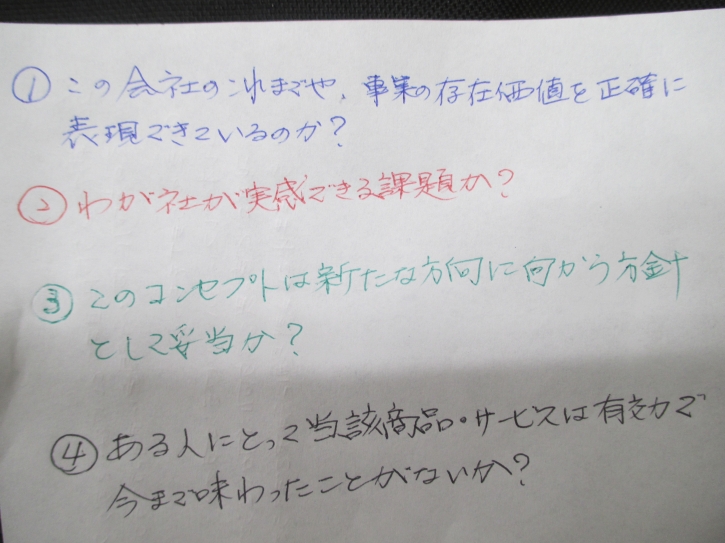 ① この会社のこれまでや、事業の存在価値を正確に
表現できているのか？
② わが社が実感できる課題か？
③ このコンセプトは新たな方向に向かう方針
として妥当か？
④ ある人にとって当該商品・サービスは有効で
今まで味わったことがないか？